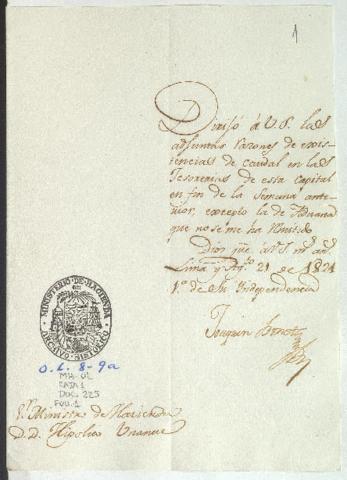 1
Dirijo á V.S. las
adjuntas razones de exis-
tencias de caudal en las
Tesorerias de esta capital
en fin de la semana ante-
rior, excepto la de Aduana
que no se me ha remitido
Dios gue. á V.S. ms. as.
Lima y Agto. 21 de 1821
1o. de Su Independencia
Joaquin Bonet
MINISTERIO DE HACIENDA
ARCHIVO HISTORICO
O.L. 8-9a
MH-OL
CAJA 1
DOC. 225
FOL. 1
Sr. Ministro de Hacienda
D. D. Hipolito Unanue